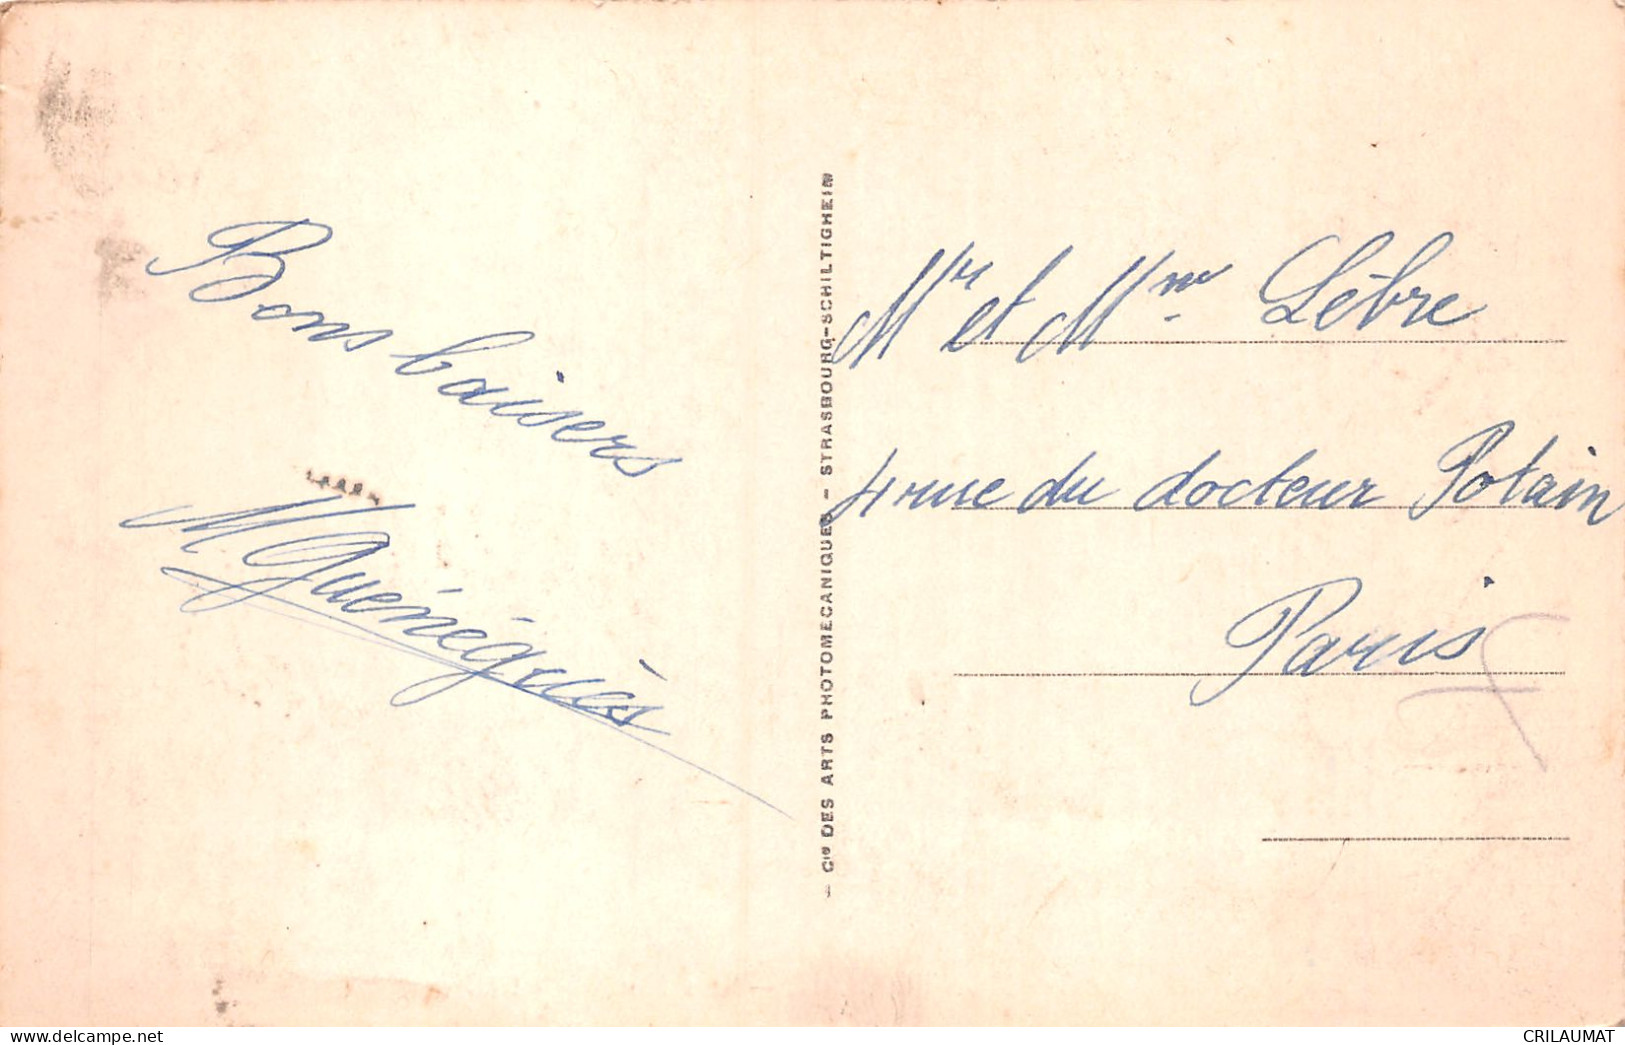 Bons baisers
M. Guénéguès
- Cie DES ARTS PHOTOMECANIQUES - STRASBOURG-SCHILTIGHEIM
Mr et Mme Lèbre
4 rue du docteur Potain
Paris
www.delcampe.net
CRILAUMAT